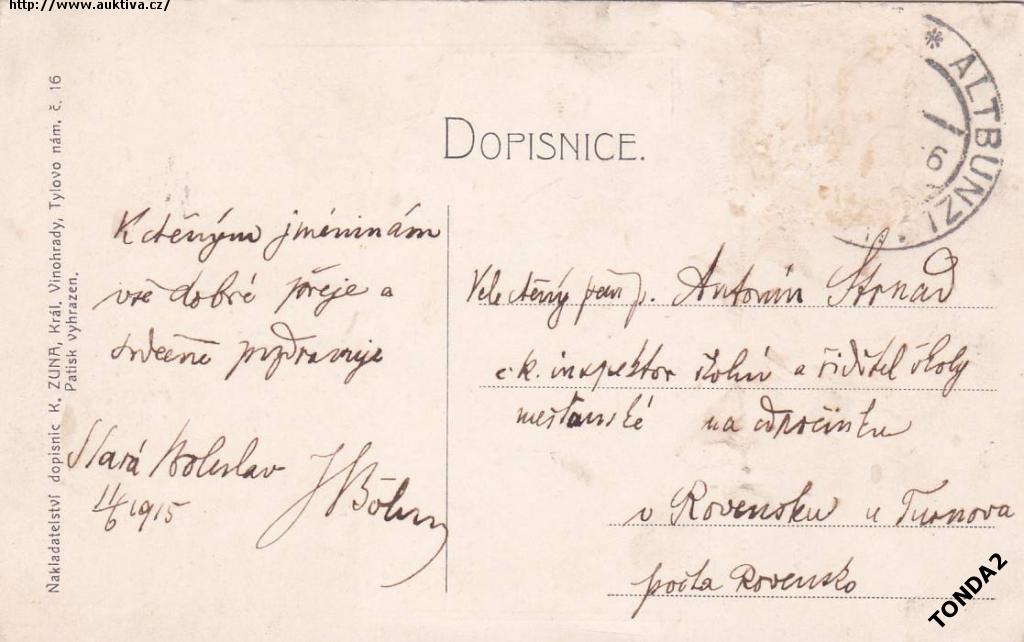 http://www.auktiva.cz/
* ALTBUNZL
6
DOPISNICE.
K ctěným jmeninám
vše dobré přeje a
srdečně pozdravuje
Stará Boleslav
11/6 1915
J Böhm
Velectěný pan p. Antonín Strnad
c. k. inspektor školní a řiditel školy
měšťanské na odpočinku
v Rovensku u Turnova
pošta Rovensko
Nakladatelství dopisnic K. ZUNA, Král. Vinohrady, Tylovo nám. č. 16
Patisk vyhrazen.
TONDA2